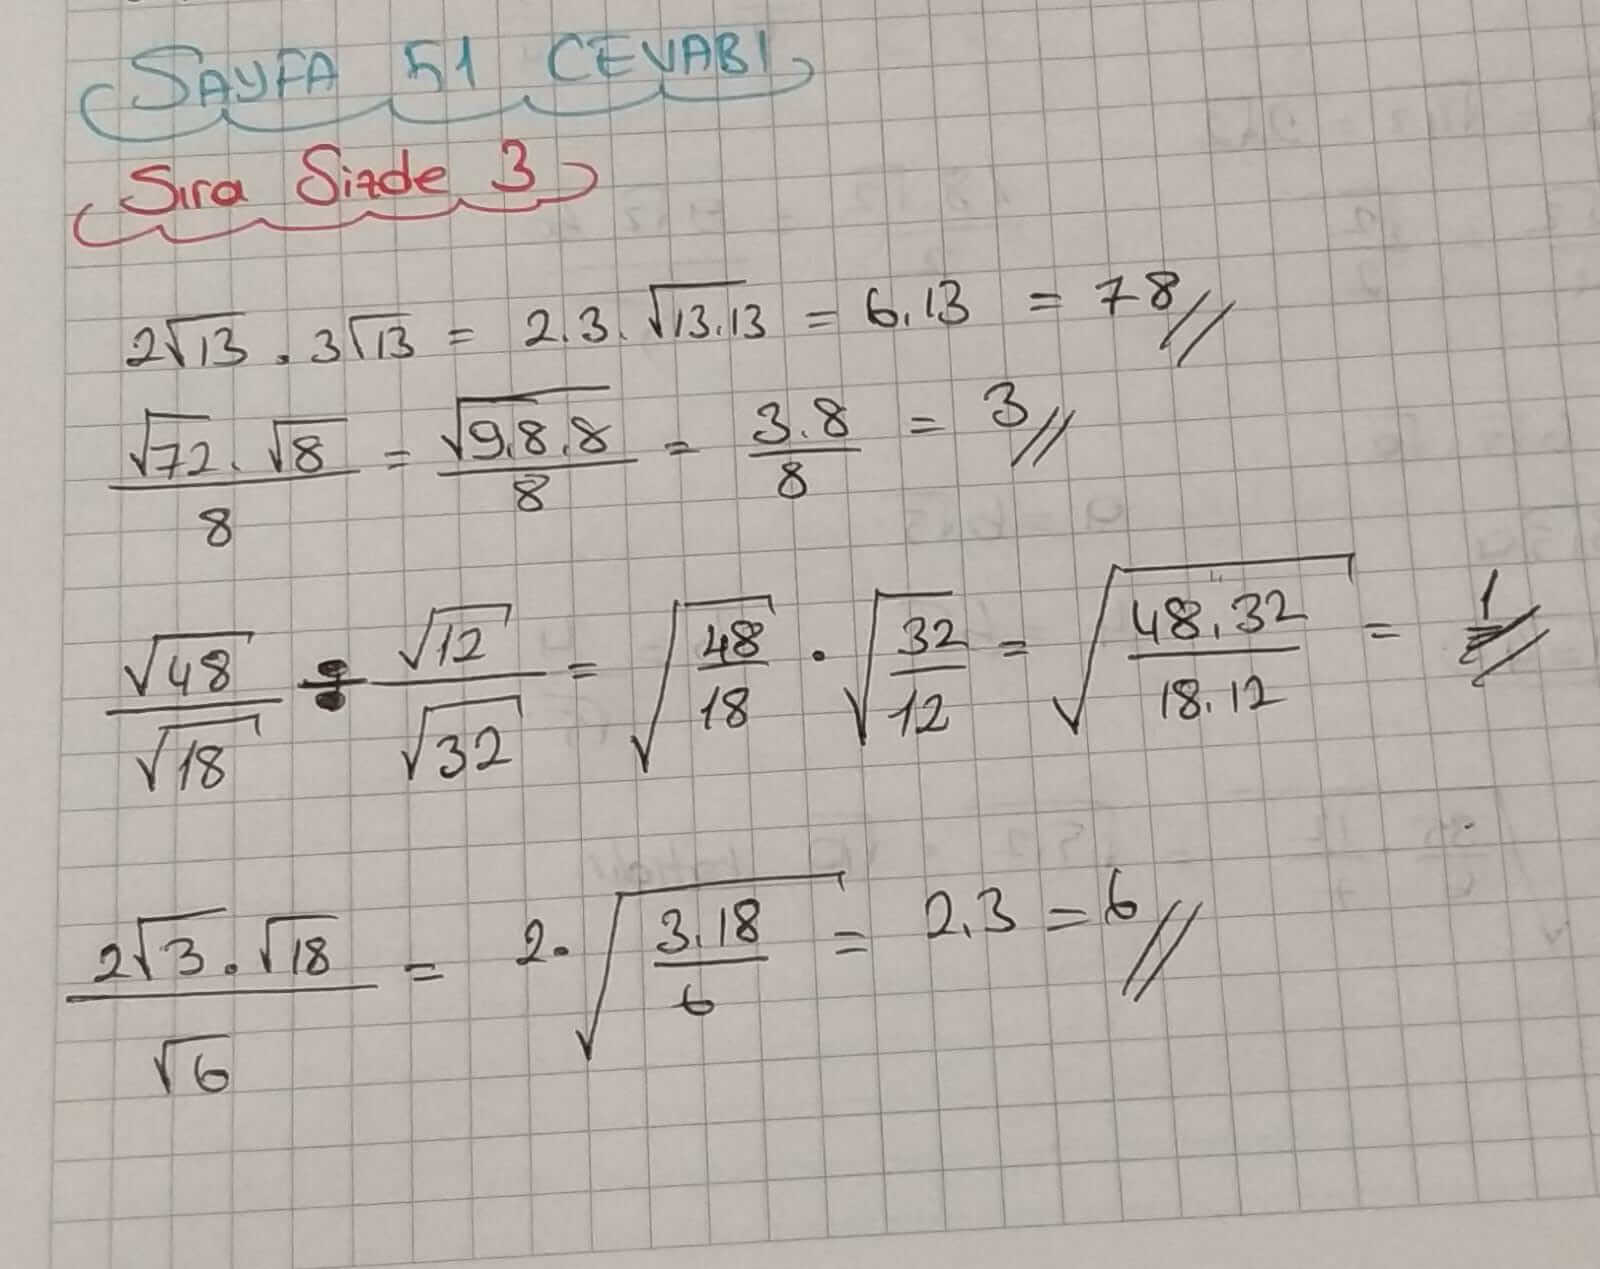 SAYFA 51 CEVABI
Sıra Sizde 3
2√13 . 3√13 = 2.3.√13.13 = 6.13 = 78//
√72 . √8 / 8 = √9.8.8 / 8 = 3.8 / 8 = 3//
√48 / √18 ÷ √12 / √32 = √48/18 . √32/12 = √48.32 / 18.12 =
2√3 . √18 / √6 = 2. √3.18 / 6 = 2.3 = 6//